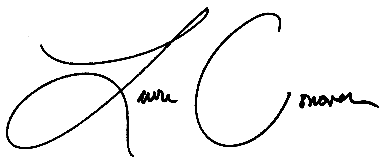 Laura Conover